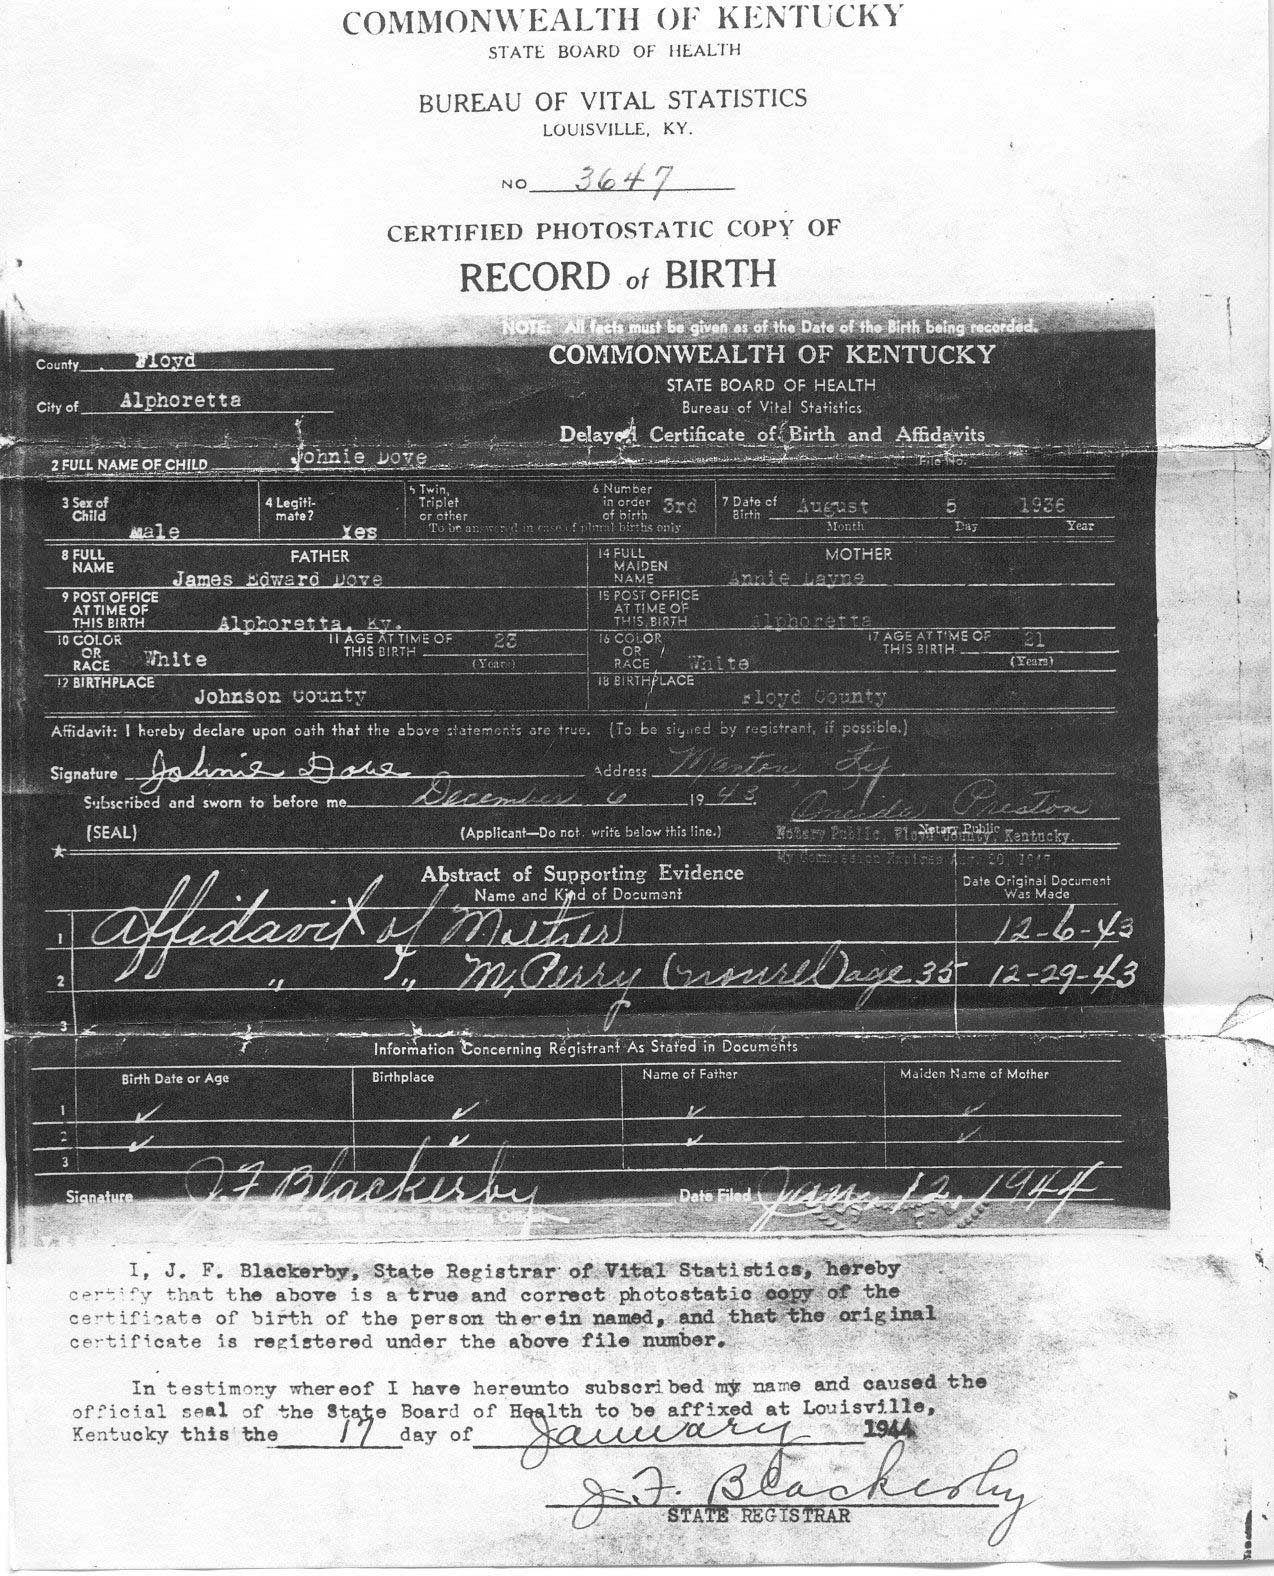 COMMONWEALTH OF KENTUCKY
STATE BOARD OF HEALTH
BUREAU OF VITAL STATISTICS
LOUISVILLE, KY.
NO 3647
CERTIFIED PHOTOSTATIC COPY OF
RECORD of BIRTH
NOTE: All facts must be given as of the Date of the Birth being recorded.
County Floyd
COMMONWEALTH OF KENTUCKY
STATE BOARD OF HEALTH
City of Alphoretta
Bureau of Vital Statistics
Delayed Certificate of Birth and Affidavits
2 FULL NAME OF CHILD Johnie Dove File No.
3 Sex of Child Male
4 Legitimate? Yes
5 Twin, Triplet or other
6 Number in order of birth 3rd
To be answered in case of plural births only
7 Date of Birth August 5 1936
Month Day Year
8 FULL NAME FATHER James Edward Dove
14 FULL MAIDEN NAME MOTHER Annie Layne
9 POST OFFICE AT TIME OF THIS BIRTH Alphoretta, Ky.
15 POST OFFICE AT TIME OF THIS BIRTH Alphoretta
10 COLOR OR RACE White
11 AGE AT TIME OF THIS BIRTH 23 (Years)
16 COLOR OR RACE White
17 AGE AT TIME OF THIS BIRTH 21 (Years)
12 BIRTHPLACE Johnson County
18 BIRTHPLACE Floyd County
Affidavit: I hereby declare upon oath that the above statements are true. (To be signed by registrant, if possible.)
Signature Johnie Dove Address Manton, Ky
Subscribed and sworn to before me December 6 1943. Oneida Preston
(SEAL) (Applicant—Do not write below this line.) Notary Public
Notary Public, Floyd County, Kentucky.
My Commission Expires Aug. 20, 1947
Abstract of Supporting Evidence
Name and Kind of Document
Date Original Document Was Made
1 Affidavit of Mother 12-6-43
2 " " M, Perry (nonrel) age 35 12-29-43
3
Information Concerning Registrant As Stated in Documents
Birth Date or Age Birthplace Name of Father Maiden Name of Mother
1 ✓ ✓ ✓ ✓
2 ✓ ✓ ✓ ✓
3
Signature J. F. Blackerby Date Filed Jan. 12, 1944
I, J. F. Blackerby, State Registrar of Vital Statistics, hereby
certify that the above is a true and correct photostatic copy of the
certificate of birth of the person therein named, and that the original
certificate is registered under the above file number.
In testimony whereof I have hereunto subscribed my name and caused the
official seal of the State Board of Health to be affixed at Louisville,
Kentucky this the 17 day of January 1944
J. F. Blackerby
STATE REGISTRAR